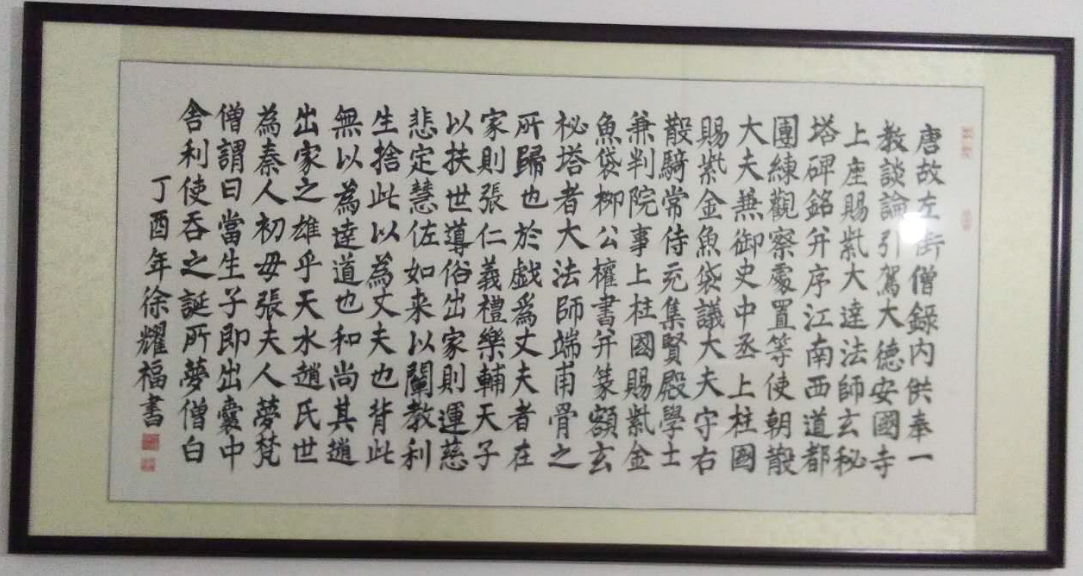 唐故左街僧錄内供奉一
教談論引駕大德安國寺
上座賜紫大達法師玄秘
塔碑銘并序江南西道都
團練觀察處置等使朝散
大夫兼御史中丞上柱國
賜紫金魚袋議大夫守右
散騎常侍充集賢殿學士
兼判院事上柱國賜紫金
魚袋柳公權書并篆額玄
秘塔者大法師端甫骨之
所歸也於戲為丈夫者在
家則張仁義禮樂輔天子
以扶世導俗出家則運慈
悲定慧佐如来以闡教利
生捨此以為丈夫也背此
無以為達道也和尚其趙
出家之雄乎天水趙氏世
為秦人初母張夫人夢梵
僧謂曰當生子即出囊中
舍利使吞之誕所夢僧白
丁酉年徐耀福書